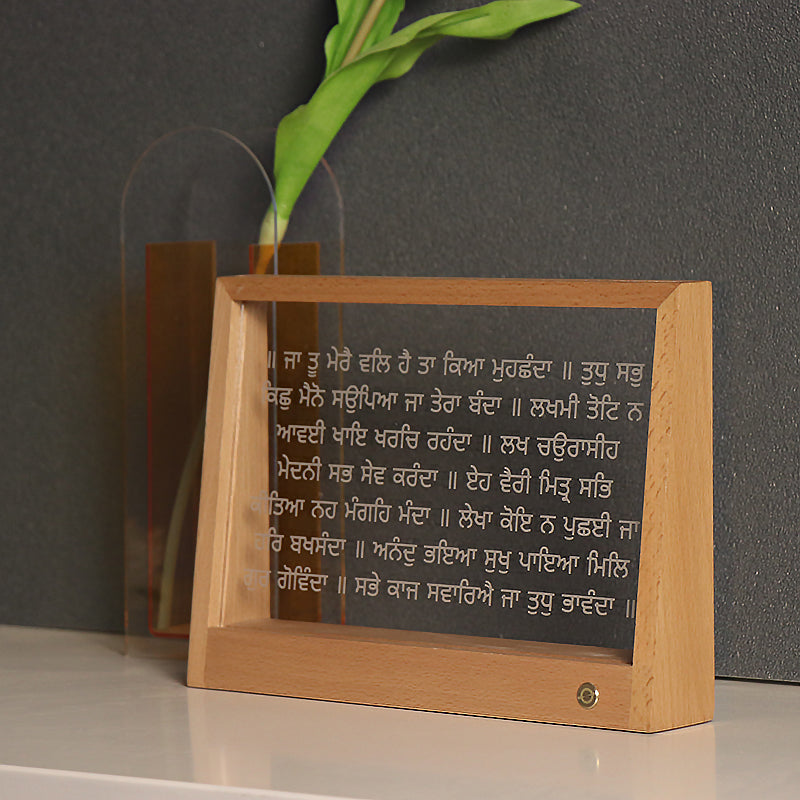 ॥ ਜਾ ਤੂ ਮੇਰੈ ਵਲਿ ਹੈ ਤਾ ਕਿਆ ਮੁਹਛੰਦਾ ॥ ਤੁਧੁ ਸਭੁ
ਕਿਛੁ ਮੈਨੋ ਸਉਪਿਆ ਜਾ ਤੇਰਾ ਬੰਦਾ ॥ ਲਖਮੀ ਤੋਟਿ ਨ
ਆਵਈ ਖਾਇ ਖਰਚਿ ਰਹੰਦਾ ॥ ਲਖ ਚਉਰਾਸੀਹ
ਮੇਦਨੀ ਸਭ ਸੇਵ ਕਰੰਦਾ ॥ ਏਹ ਵੈਰੀ ਮਿਤ੍ਰ ਸਭਿ
ਕੀਤਿਆ ਨਹ ਮੰਗਹਿ ਮੰਦਾ ॥ ਲੇਖਾ ਕੋਇ ਨ ਪੁਛਈ ਜਾ
ਹਰਿ ਬਖਸੰਦਾ ॥ ਅਨੰਦੁ ਭਇਆ ਸੁਖੁ ਪਾਇਆ ਮਿਲਿ
ਗੁਰ ਗੋਵਿੰਦਾ ॥ ਸਭੇ ਕਾਜ ਸਵਾਰਿਐ ਜਾ ਤੁਧੁ ਭਾਵੰਦਾ ॥